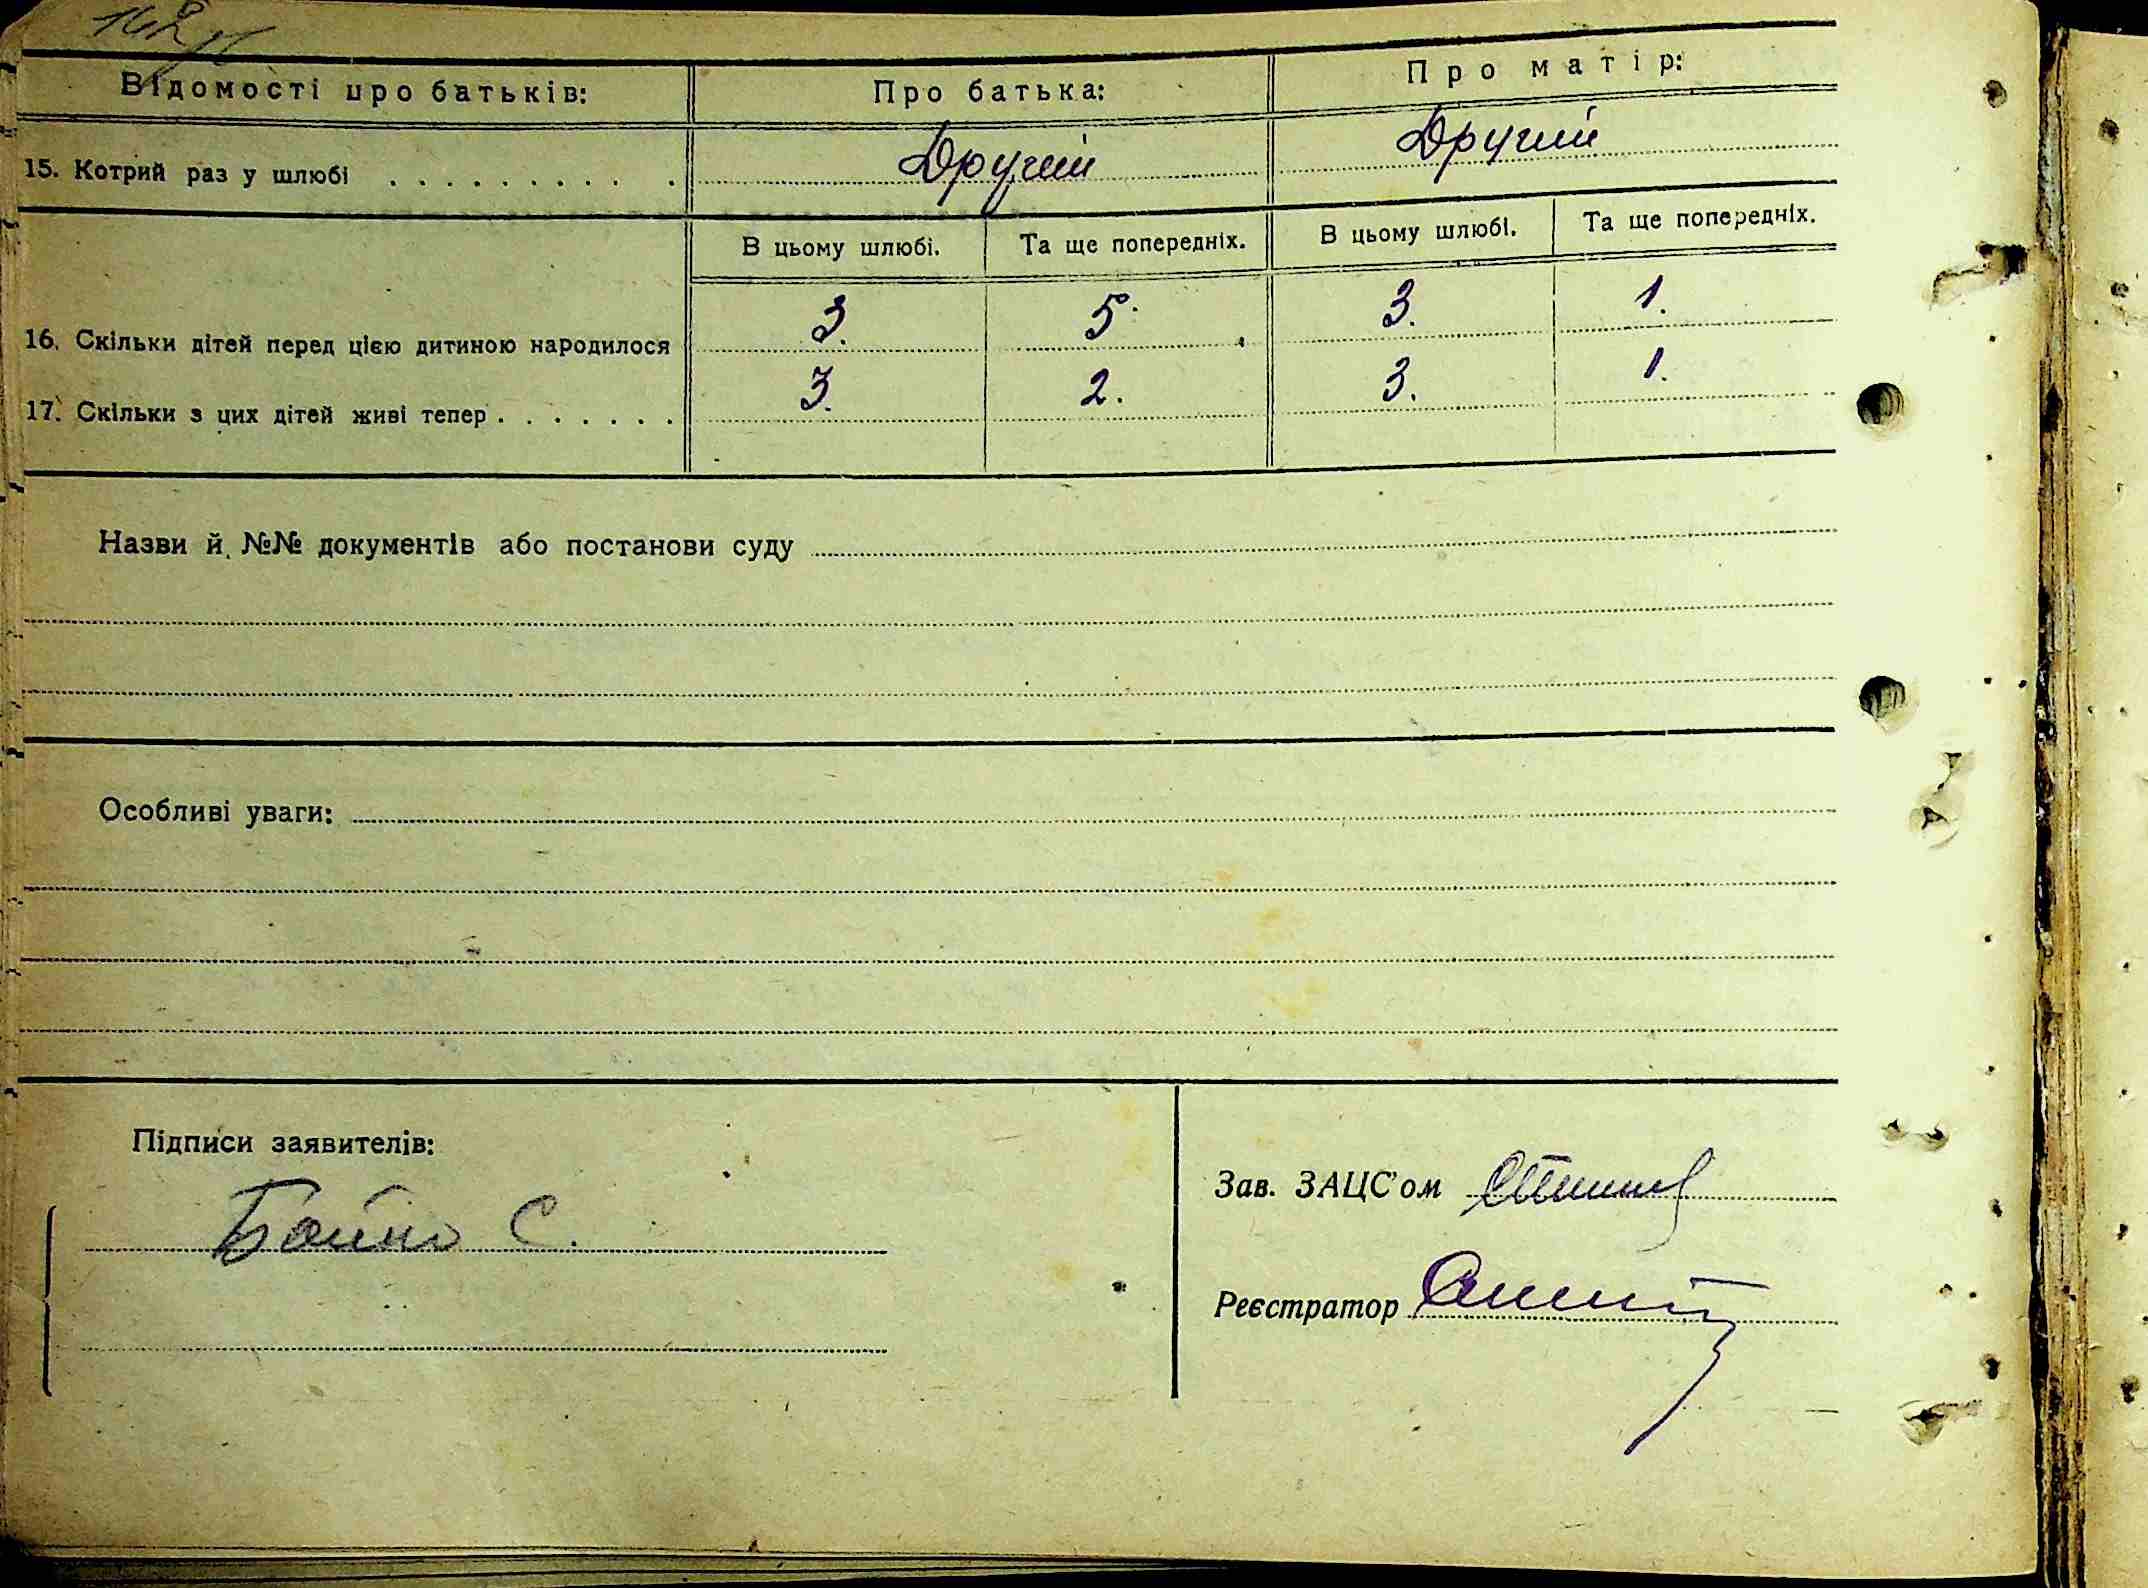 Відомості про батьків: Про батька: Про матір:
15. Котрий раз у шлюбі . . . . . . . . . . Другий Другий
В цьому шлюбі. Та ще попередніх. В цьому шлюбі. Та ще попередніх.
16. Скільки дітей перед цією дитиною народилося 3. 5. 3. 1.
17. Скільки з цих дітей живі тепер . . . . . . . 3. 2. 3. 1.
Назви й №№ документів або постанови суду
Особливі уваги:
Підписи заявителів:
Зав. ЗАЦС'ом
С.
Реєстратор